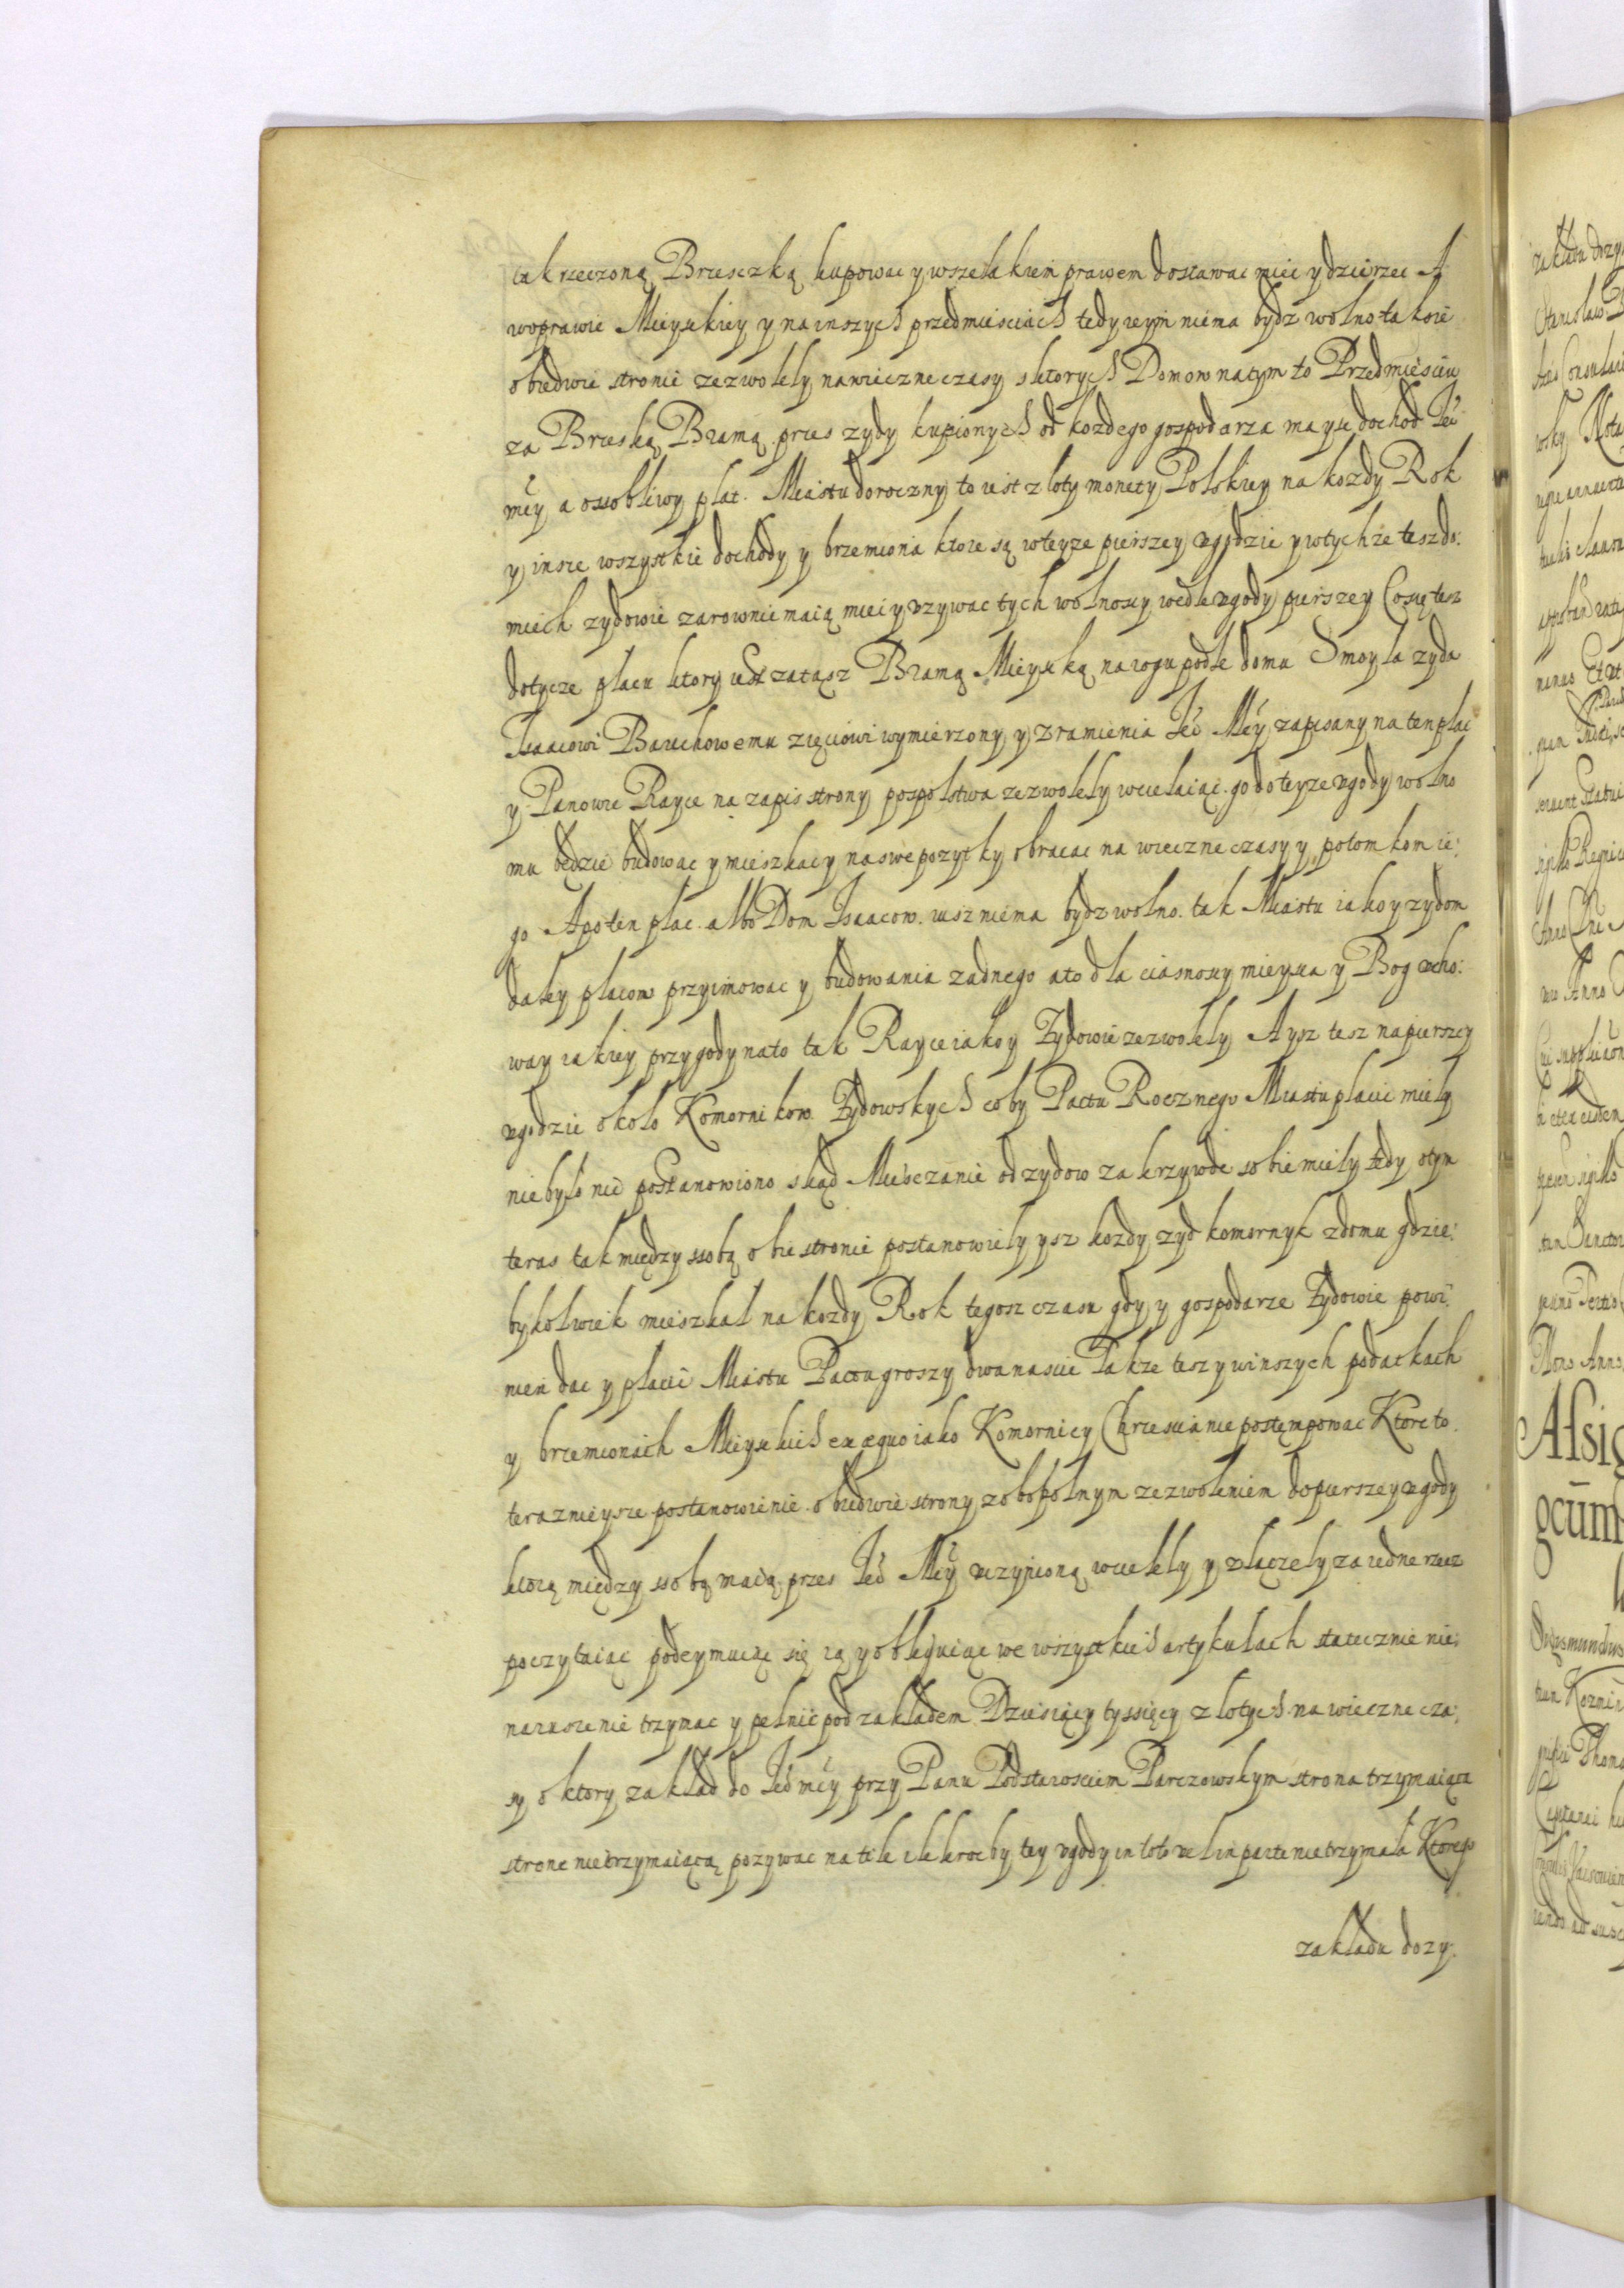 tak rzeczoną Brzesczką kupowac y wszelakiem prawem dostawac miec y dzierzec A
woprawie Mieyskiey y na inszych przedmiesciach tedy ieym niema bydz wolno takoie
obiedwie stronie zezwolely nawieczne czasy s ktorych Domow na tym to Przedmiesciu
za Brzeską Bramą przes zydy kupionych od kozdego gospodarza ma ysc dochod Jeo
mcy a ossobliwy plat. Miastu doroczny to iest zloty monety Polskiey na kozdy Rok
y insze wszystkie dochody y brzemiona ktore są wteyze pierszey vgodzie y wtychze tesz do:
miech zydowie zarownie maią miec y vzywac tych wolnoscy wedle vgody pierszey Co się tesz
dotycze placu ktory iest zatąsz Bramą Mieyską na rogu podle domu Smoyla zyda
Isaacowi Baruchowemu zięciowi wymierzony y z ramienia Jeo Mcy zapisany na ten plac
y Panowie Rayce na zapis strony pospolstwa zezwolely wcielaiąc go do teyze vgody wolno
mu będzie budowac y mieszkac y na swe pozytky obracac na wieczne czasy y potomkom ie:
go A po ten plac albo Dom Isaacow iusz niema bydz wolno tak Miastu iako y zydom
daley placow przyimowac y budowania zadnego a to dla ciasnoscy mieysca y Bog vcho:
way iakiey przygody na to tak Rayce iako y Zydowie zezwolely A ysz tesz na pierszey
vgodzie okolo Komornikow Zydowskych coby Pactu Rocznego Miastu placic miely
nie bylo nic postanowiono skąd Miesczanie od zydow za krzywde sobie miely tedy o tym
teras tak między ssobą obie stronie postanowiely ysz kozdy zyd komornyk z domu gdzie:
bykolwiek mieszkal na kozdy Rok tegosz czasu gdy y gospodarze Zydowie powi:
nien dac y placic Miastu Pactu groszy dwanascie Takze tesz y winszych podatkach
y brzemionach Mieyskich ex æquo iako Komornicy Chrzescianie postęmpowac Ktore to
teraznieysze postanowienie obiedwie strony zobopolnym zezwoleniem do pierszey vgody
ktorą między ssobą maią przes Jeo Mcy vczynioną wcielely y złączely za iedne rzecz
poczytaiąc podeymuiąc się ią y obliguiąc we wszystkich artykulach statecznie nie:
naruszenie trzymac y pelnic pod zakladem Dziesiący tyssięcy zlotych na wieczne cza:
sy o ktory zaklad do Jeo mcy przy Panu Podstarosciem Parczowskym strona trzymaiącą
strone nietrzymaiącą pozywac na tile ilekroc by tey vgody in toto vel in parte nie trzymała Ktorego
zakladu dozy: